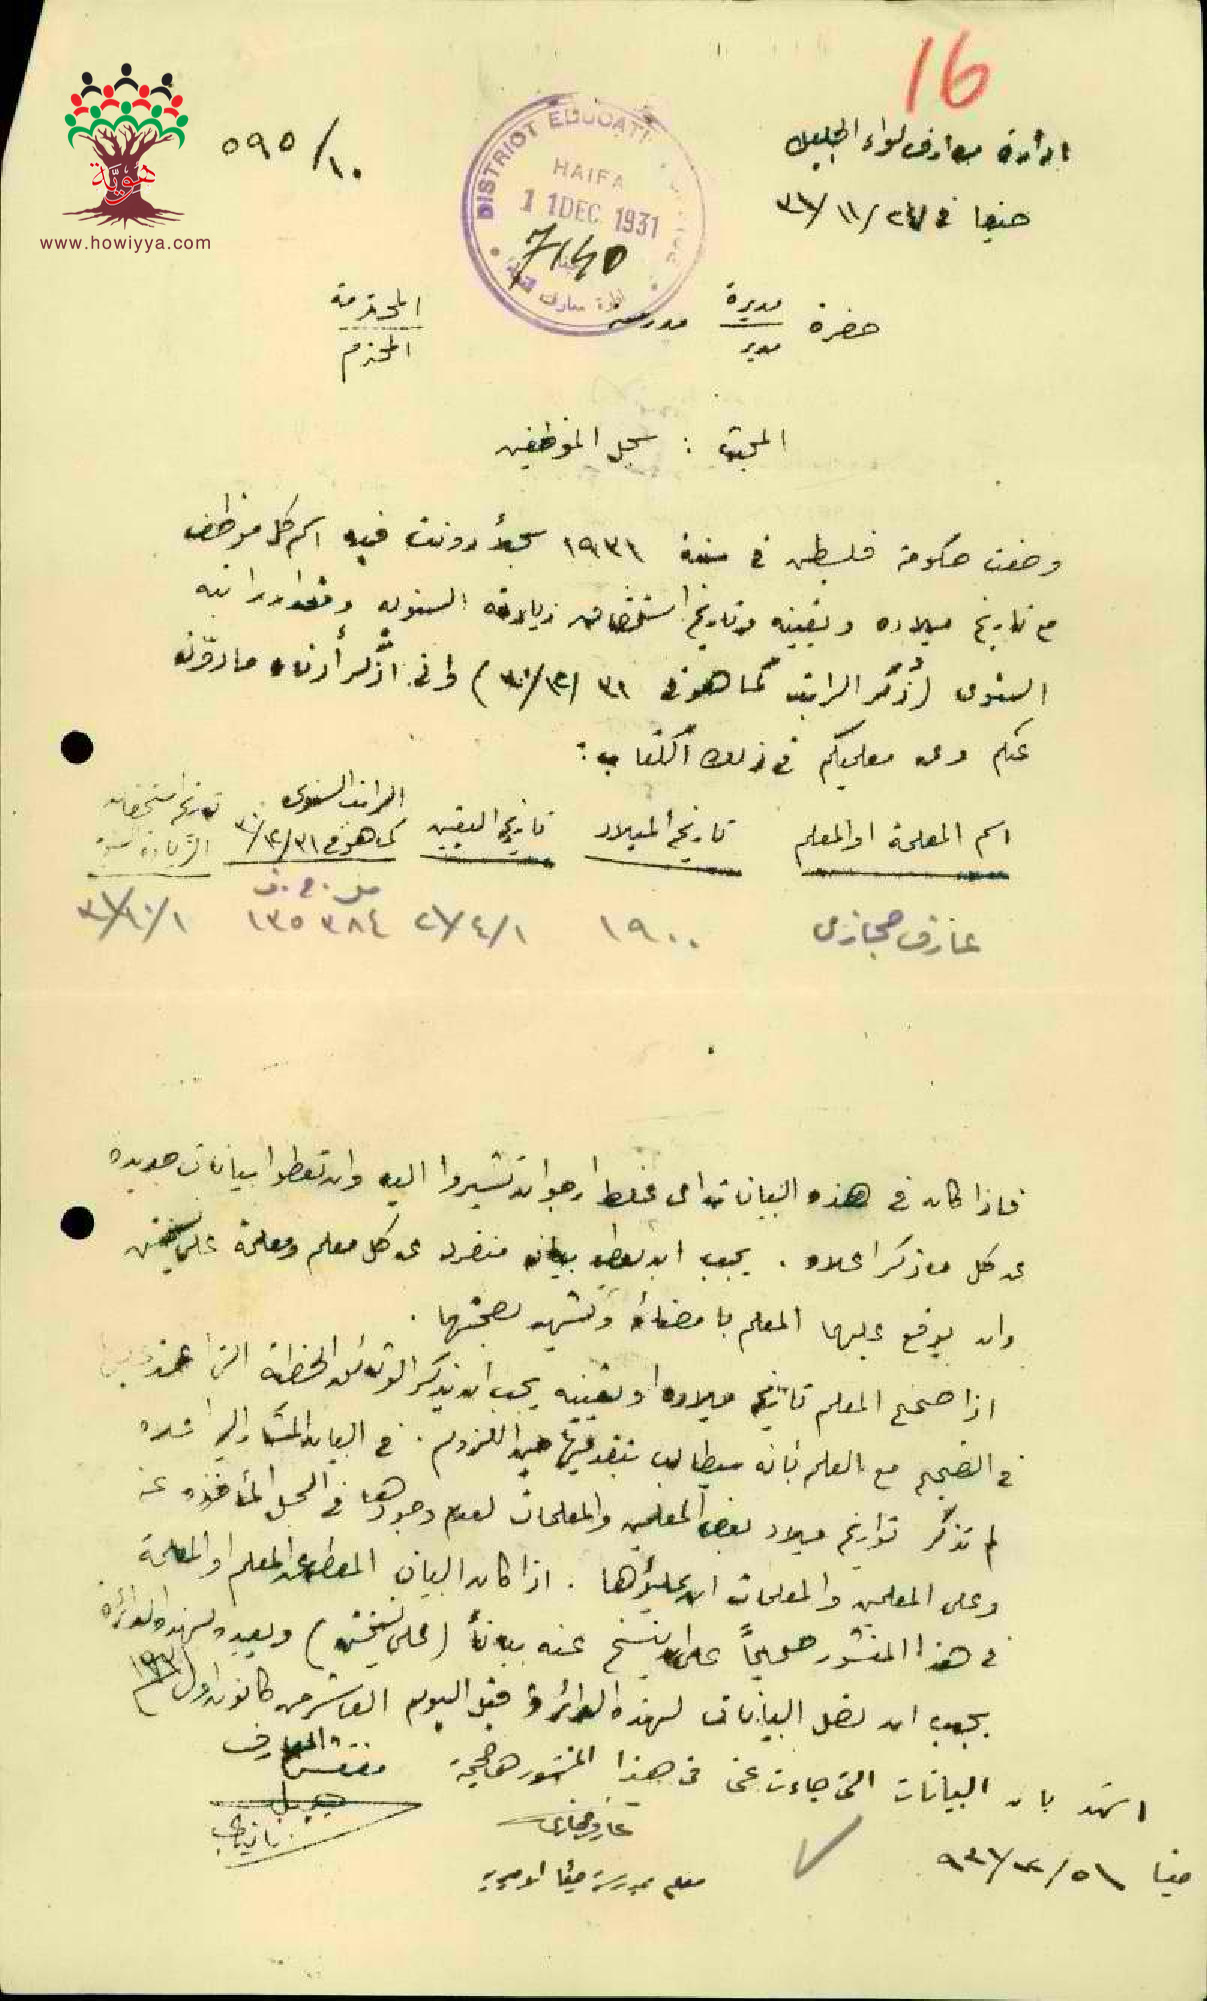 16
ادارة معارف لواء الجليل
١٠/٥٩٥
حيفا في ٢٧/١١/٣١
DISTRICT EDUCATION OFFICE
HAIFA
11 DEC 1931
7140
حضرة مديرة مدرسة المحترمة
مدير المحترم
المبحث : سجل الموظفين
وضعت حكومة فلسطين في سنة ١٩٣١ سجلاً دونت فيه اسم كل موظف
مع تاريخ ميلاده وتعيينه وتاريخ استحقاق زيادته السنوية ومقدار راتبه
السنوي (ذُكر الراتب كما هو في ٣١/١٢/٣٠) واني اذكر أدناه ما دوّن
عنكم وعن معلميكم في ذلك الكتاب :
اسم المعلمة او المعلم
تاريخ الميلاد
تاريخ التعيين
الراتب السنوي
كما هو في ٣١/١٢/٣٠
تاريخ استحقاق
الزيادة
عارف حجازي
١٩٠٠
١/٤/٢٧
١٣٥ ٣٨٤
١/١٠/٣١
فاذا كان في هذه البيانات اي غلط ارجو ان تشيروا اليه وان تعطوا بيانات جديدة
عن كل ما ذكر اعلاه . يجب ان يعطى بيان منفرد عن كل معلم ومعلمة على نسختين
وان يوقع عليها المعلم بامضائه وتشهد بصحتها .
اذا صحح المعلم تاريخ ميلاده او تعيينه يجب ان يذكر الوثائق الخطية التي اعتمد عليها
في التصحيح مع العلم بانه سيطالب بتقديمها حين اللزوم . في البيان المشار اليه اعلاه
لم تذكر تواريخ ميلاد بعض المعلمين والمعلمات لعدم وجودها في السجل المأخوذه عنه
وعلى المعلمين والمعلمات ان يملؤها . اذا كان البيان المعطى عن المعلم او المعلمة
في هذا المنشور صحيحاً عليه ان ينسخ عنه بياناً (على نسختين) ويعيده لهذه الدائرة
يجب ان تصل البيانات لهذه الدائرة قبل اليوم العاشر من كانون اول ١٩٣١
مفتش المعارف
بالنيابة
اشهد بان البيانات التي جاءت عني في هذا المنشور صحيحة
عارف حجازي
معلم مدرسة حيفا الاميرية
حيفا
هويّة
www.howiyya.com